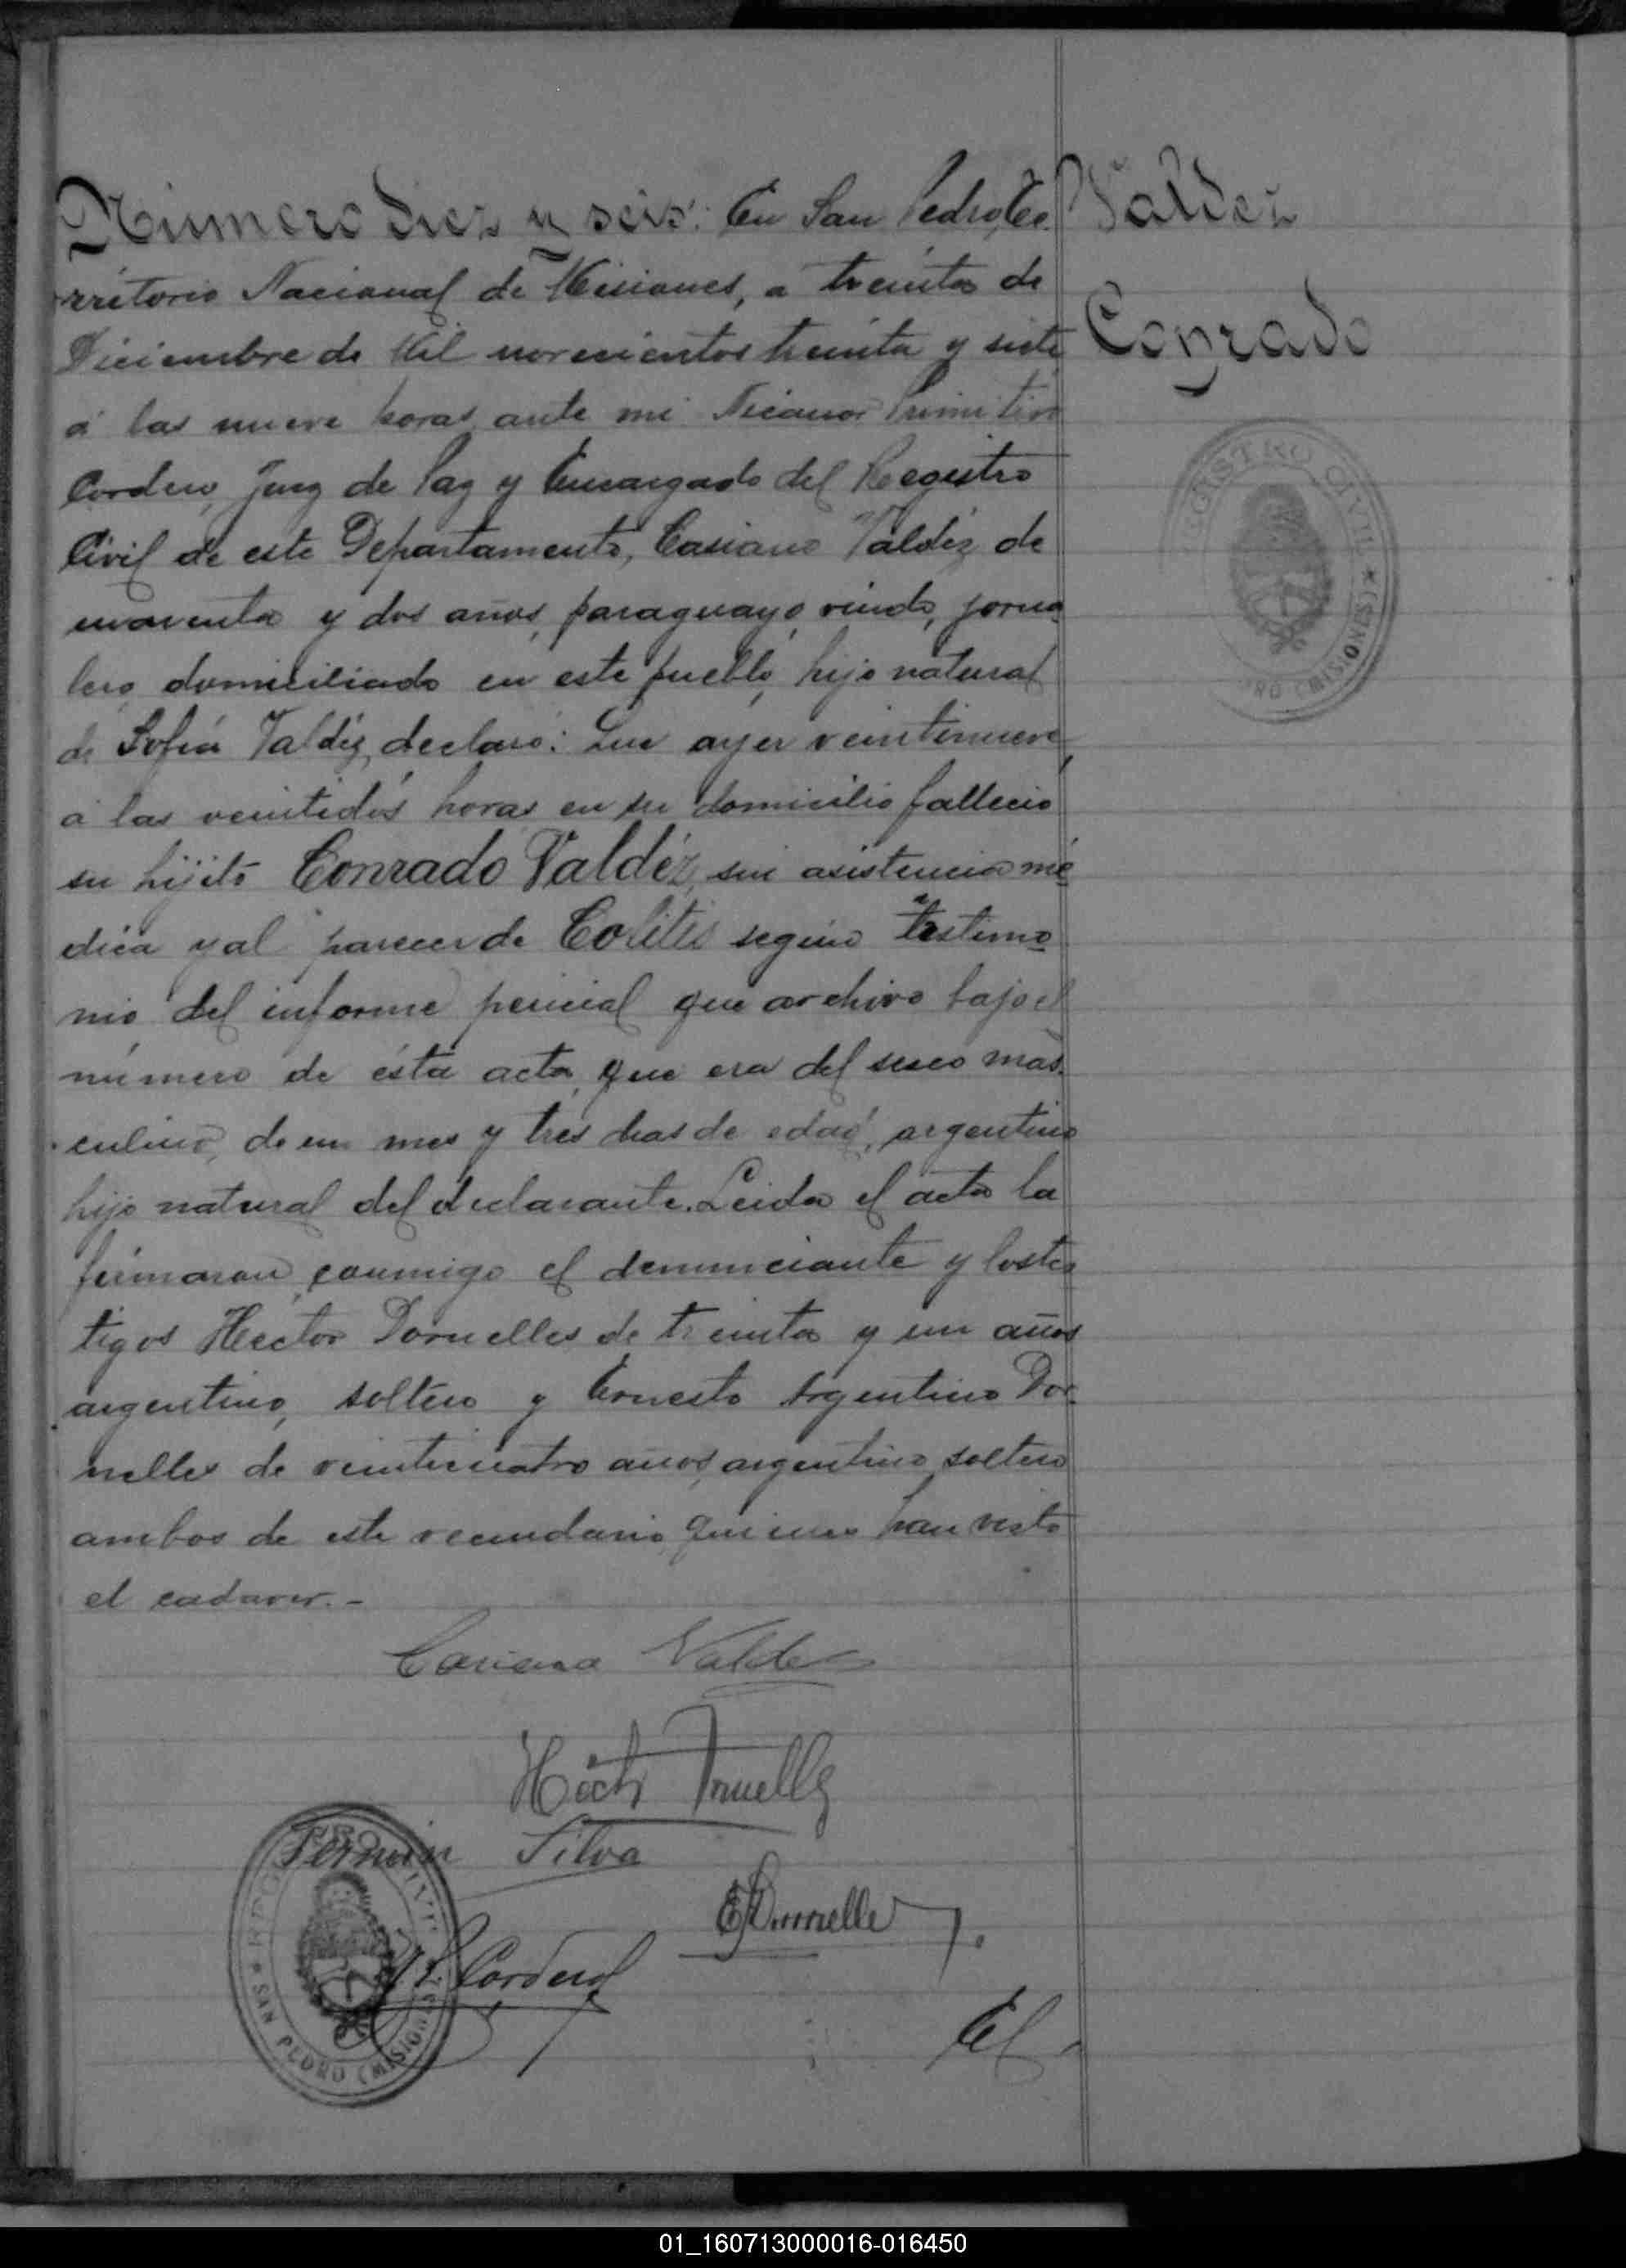 Número diez y seis: En San Pedro, Te-
rritorio Nacional de Misiones, a treinta de
Diciembre de Mil novecientos treinta y siete
a las nueve horas, ante mi Nicanor Primitivo
Cordero, Juez de Paz y Encargado del Registro
Civil de este Departamento, Casiano Valdéz de
cuarenta y dos años, paraguayo, viudo, jorna-
lero, domiciliado en este pueblo, hijo natural
de Sofía Valdéz, declaró: Que ayer veintinueve,
a las veintidós horas en su domicilio falleció
su hijito Conrado Valdéz, sin asistencia mé-
dica y al parecer de Colitis según testimo-
nio del informe pericial que archivo bajo el
número de ésta acta, que era del sexo mas-
culino, de un mes y tres dias de edad, argentino
hijo natural del declarante. Leida el acta la
firmaron conmigo el denunciante y los tes-
tigos Hector Dornelles de treinta y un años
argentino, soltero y Ernesto Argentino Dor-
nelles de veinticuatro años, argentino, soltero
ambos de este vecindario quienes han visto
el cadaver.-
Casiano Valdez
Hector Dornelles
Fermin Silva
E. Dornelles
N. P. Cordero
El
Valdez
Conrado
REGISTRO CIVIL
SAN PEDRO (MISIONES)
REGISTRO CIVIL
SAN PEDRO (MISIONES)
01_160713000016-016450